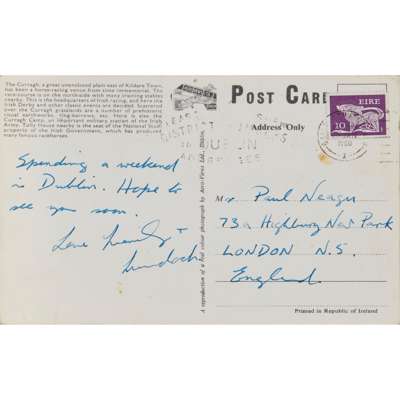 The Curragh, a great unenclosed plain east of Kildare Town,
has been a horse-racing venue from time immemorial. The
racecourse is on the northside with many training stables
nearby. This is the headquarters of Irish racing, and here the
Irish Derby and other classic events are decided. Scattered
over the Curragh grassland are numerous prehistoric
ritual earthworks, ring-barrows, etc. Here is also the
Curragh Camp, an important military station of the Irish
Army. Tully House nearby is the seat of the National Stud
property of the Irish Government, which has produced
many famous racehorses.
POST CARD
Address Only
EIRE
10
Spending a weekend
in Dublin. Hope to
see you soon.
Love
A reproduction of a full colour photograph by Ltd., Dublin.
Mr Paul Neagu
73a Highbury New Park
LONDON N.5.
England.
Printed in Republic of Ireland